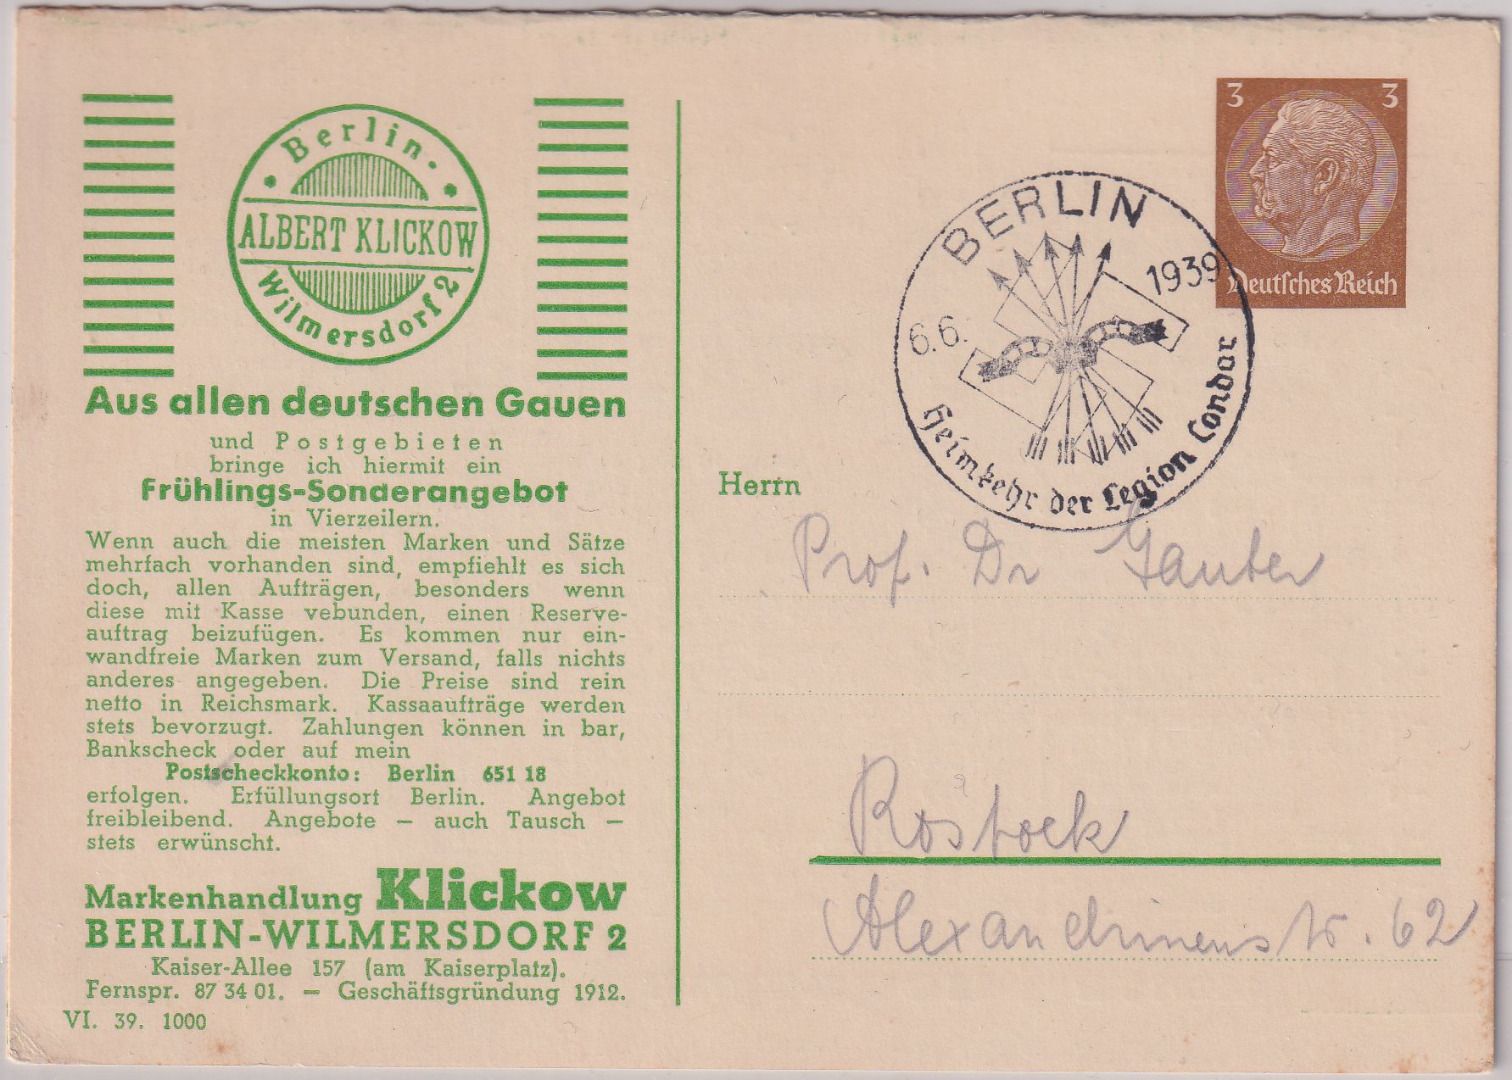 Berlin-
ALBERT KLICKOW
Wilmersdorf 2
Aus allen deutschen Gauen
und Postgebieten
bringe ich hiermit ein
Frühlings-Sonderangebot
in Vierzeilern.
Wenn auch die meisten Marken und Sätze
mehrfach vorhanden sind, empfiehlt es sich
doch, allen Aufträgen, besonders wenn
diese mit Kasse vebunden, einen Reserve-
auftrag beizufügen. Es kommen nur ein-
wandfreie Marken zum Versand, falls nichts
anderes angegeben. Die Preise sind rein
netto in Reichsmark. Kassaaufträge werden
stets bevorzugt. Zahlungen können in bar,
Bankscheck oder auf mein
Postscheckkonto: Berlin 651 18
erfolgen. Erfüllungsort Berlin. Angebot
freibleibend. Angebote — auch Tausch —
stets erwünscht.
Markenhandlung Klickow
BERLIN-WILMERSDORF 2
Kaiser-Allee 157 (am Kaiserplatz).
Fernspr. 87 34 01. — Geschäftsgründung 1912.
VI. 39. 1000
3 3
Deutsches Reich
BERLIN
6.6. 1939
Heimkehr der Legion Condor
Herrn
Prof. Dr
Rostock
Alexandrinenstr. 62